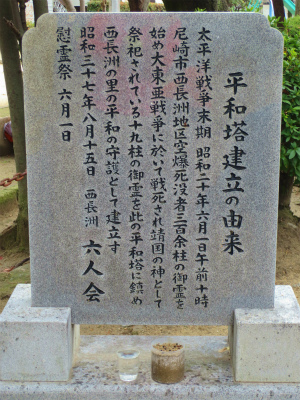 平和塔建立の由来
太平洋戦争末期 昭和二十年六月一日午前十時
尼崎市西長洲地区空爆死没者三百余柱の御霊を
始め大東亜戦争に於いて戦死され靖国の神として
祭祀されている十九柱の御霊を此の平和塔に鎮め
西長洲の里の平和の守護として建立す
昭和三十七年八月十五日 西長洲 六人会
慰霊祭 六月一日